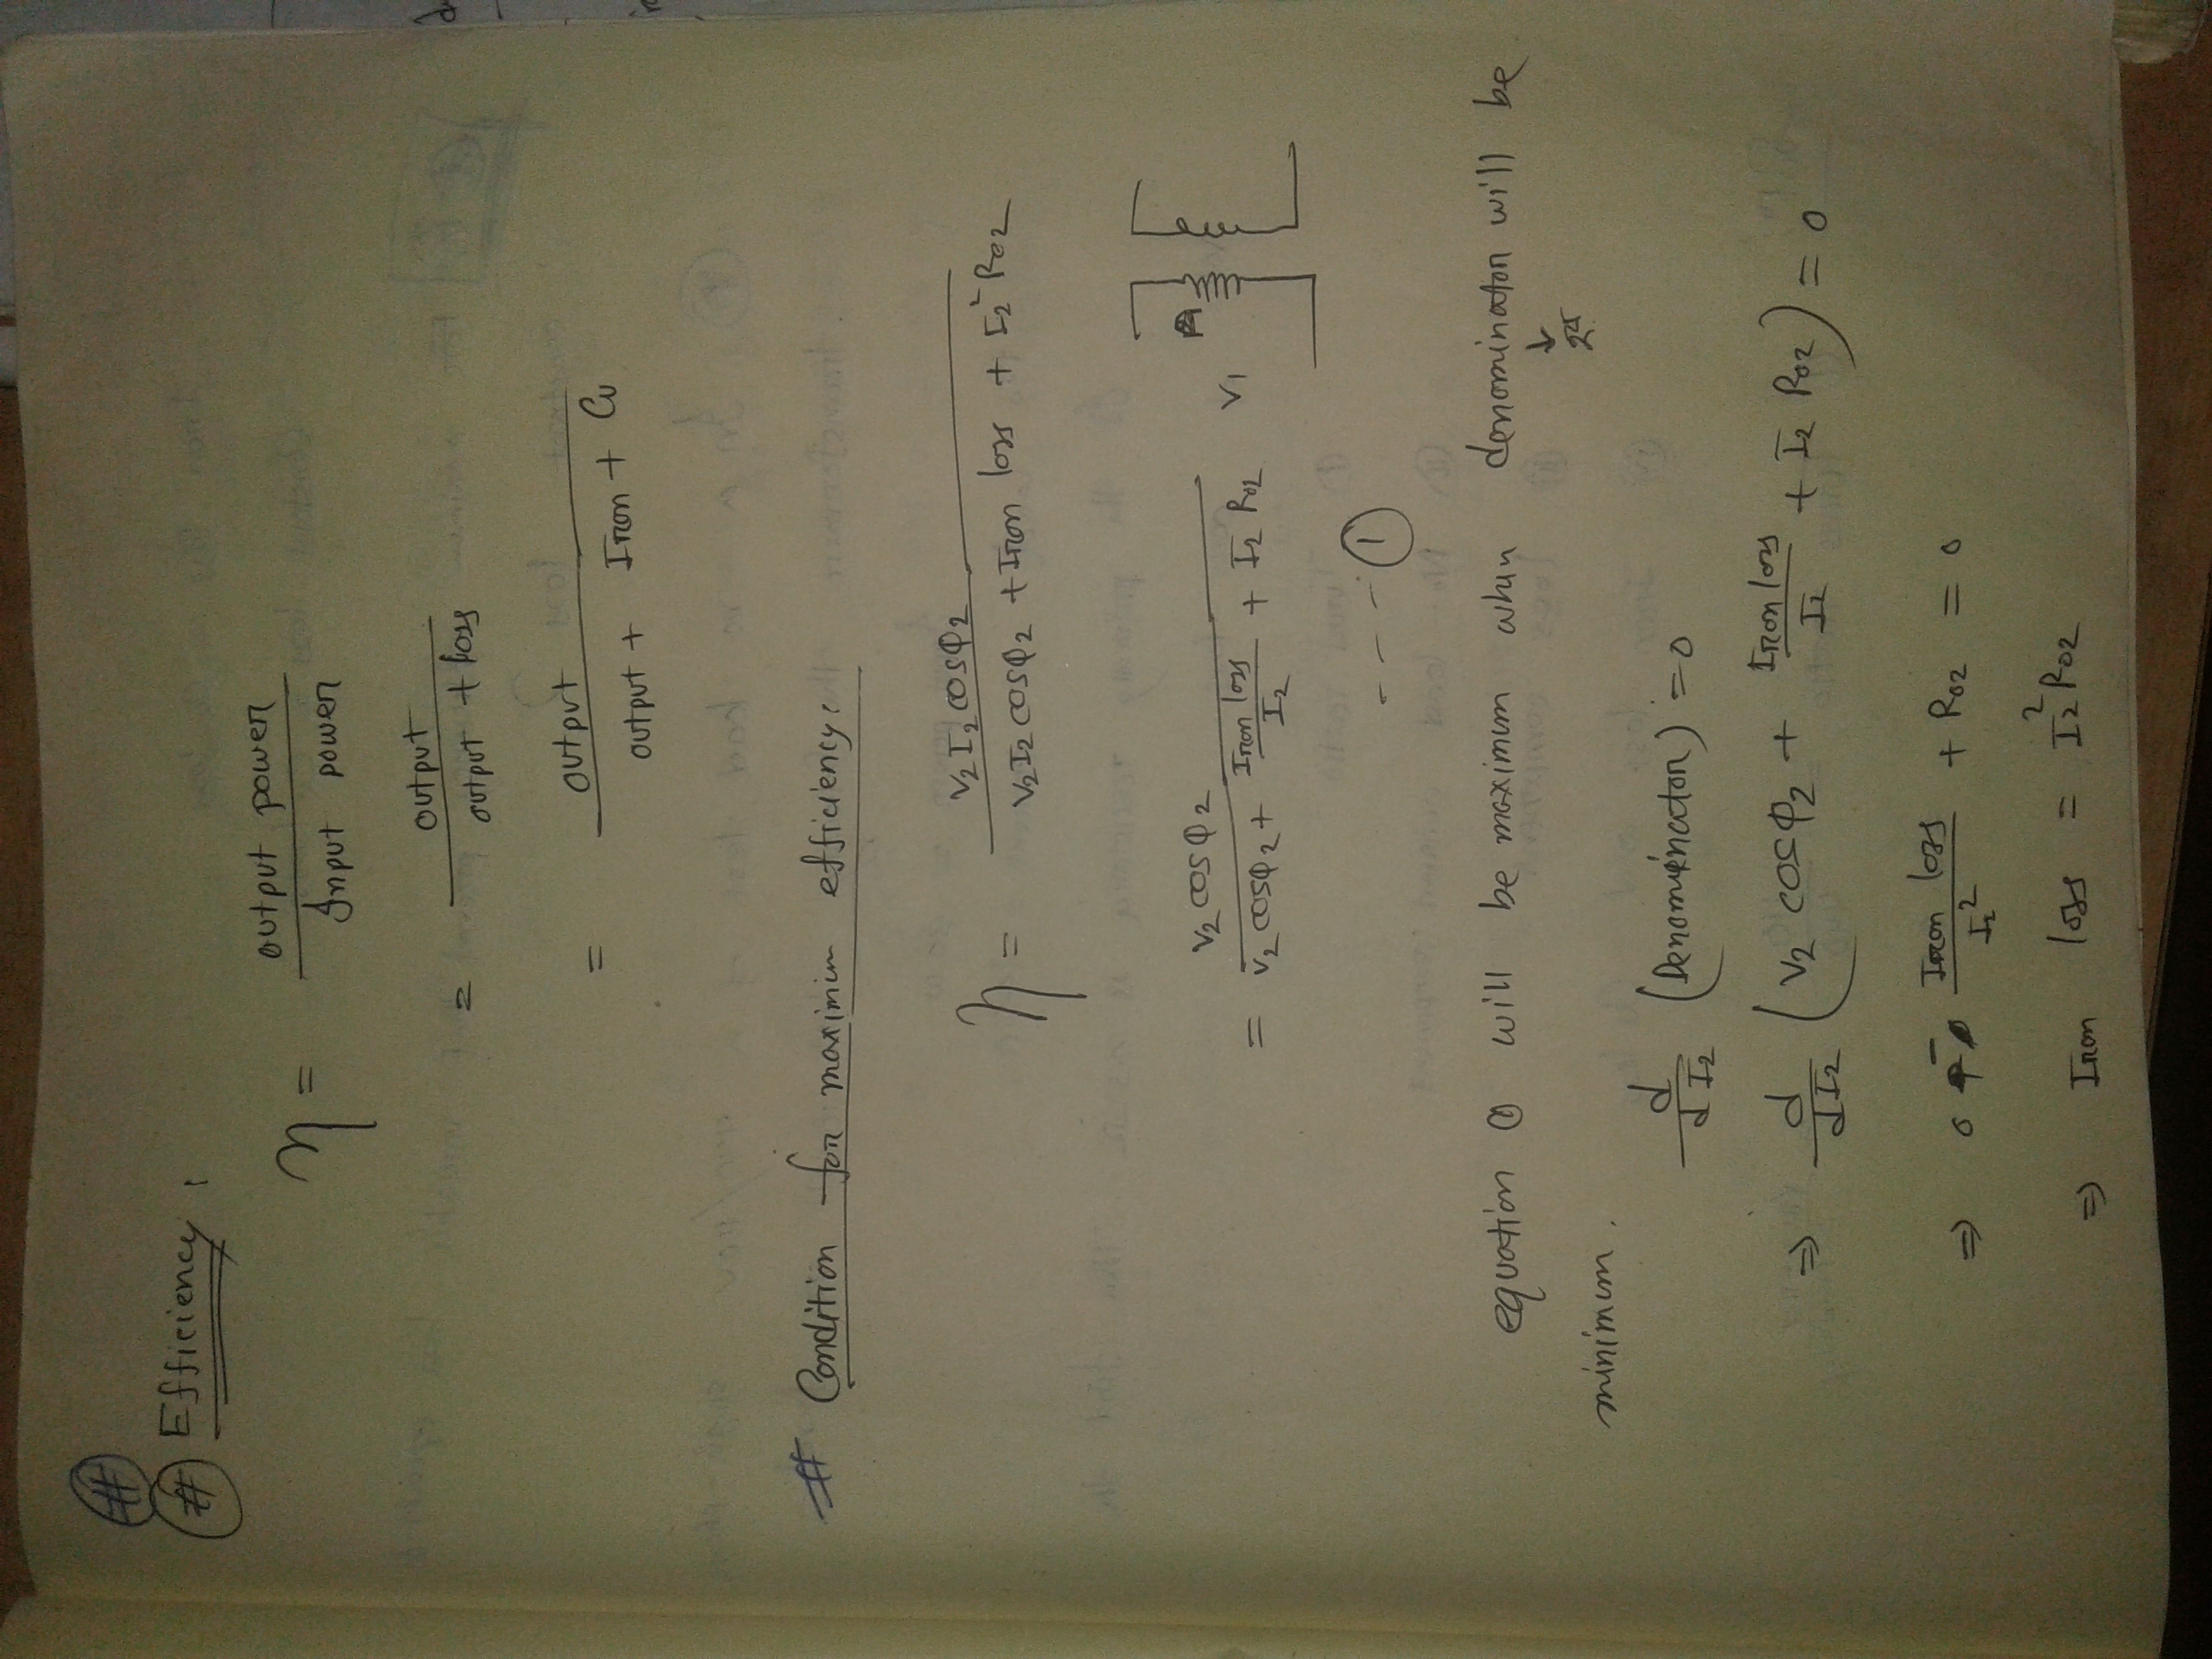 #
# Efficiency :
η = output power / Input power
= output / output + loss
= output / output + Iron + Cu
# Condition for maximim efficiency:
η = V2 I2 cosφ2 / V2 I2 cosφ2 + Iron loss + I2² R02
= V2 cosφ2 / V2 cosφ2 + Iron loss / I2 + I2 R02
V1
---- ①
equation ① will be maximum when denominator will be
↓
minimum.
d/dI2 (Denominator) = 0
⇒ d/dI2 (V2 cosφ2 + Iron loss / I2 + I2 R02) = 0
⇒ 0 - Iron loss / I2² + R02 = 0
⇒ Iron loss = I2² R02